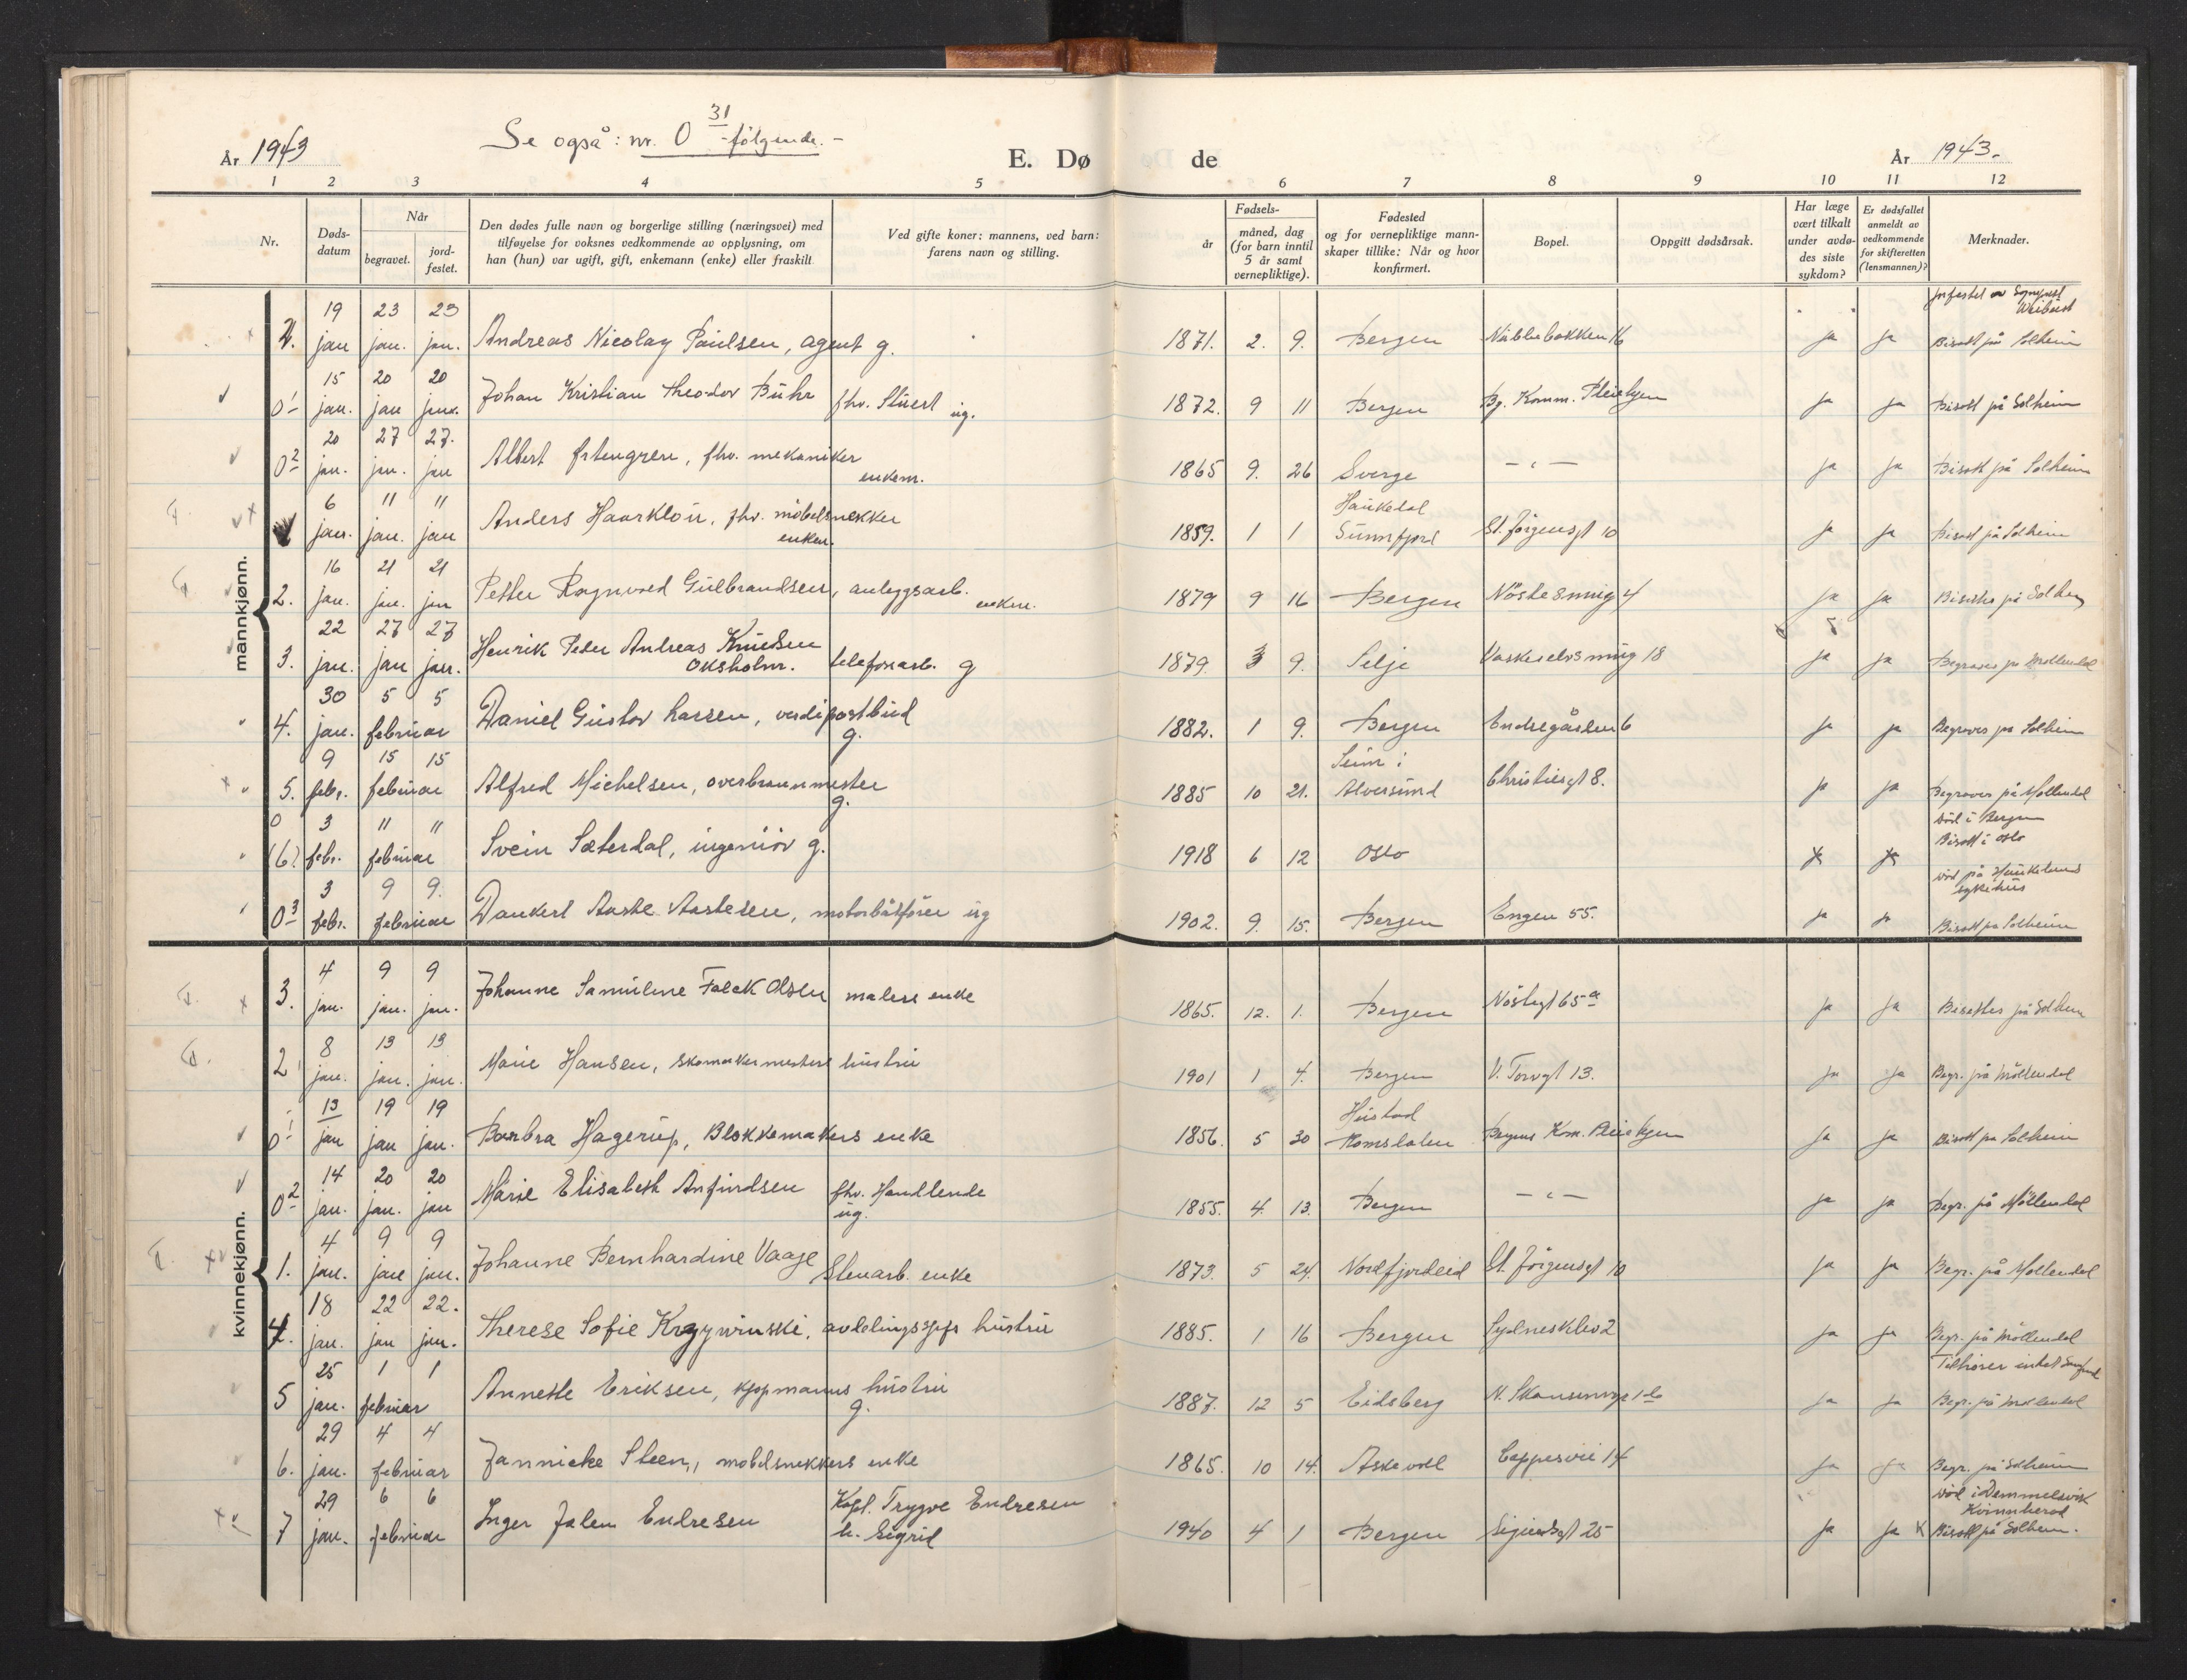 År 1943
Se også: nr. 0 31 følgende. -
E. Dø de
År 1943.
1 2 3 4 5 6 7 8 9 10 11 12
Nr.
Døds-
datum
Når
begravet.
jord-
festet.
Den dødes fulle navn og borgerlige stilling (næringsvei) med
tilføyelse for voksnes vedkommende av opplysning, om
han (hun) var ugift, gift, enkemann (enke) eller fraskilt
Ved gifte koner: mannens, ved barn:
farens navn og stilling.
Fødsels-
år
måned, dag
(for barn inntil
5 år samt
vernepliktige).
Fødested
og for vernepliktige mann-
skaper tillike: Når og hvor
konfirmert.
Bopel.
Oppgitt dødsårsak.
Har læge
vært tilkalt
under avdø-
des siste
sykdom?
Er dødsfallet
anmeldt av
vedkommende
for skifteretten
(lensmannen)?
Merknader.
mannkjønn.
19 23 23
jan jan. jan. Andreas Nicolay Paulsen, agent g. 1871. 2. 9. Bergen 16 ja ja Bisatt på Solheim
15 20 20
0 1 jan. jan jan. Johan Kristian Theodor Buhr fhv. Stuert ug. 1872. 9 11 Bergen Bg. Komm. Pleiehjem ja ja Bisatt på Solheim
20 27 27.
0 2 jan. jan. jan Albert fhv. mekaniker enkem. 1865 9. 26 Sverge - " - ja ja Bisatt på Solheim
6 11 11 Haukedal
jan. jan. jan Anders Haarklou, fhv. møbelsnekker enkem. 1859. 1 1 Sunnfjord St. Jørgensgt 10 ja ja Bisatt på Solheim
16 21 21
2. jan. jan. jan Petter Ragnvald Gulbrandsen, anleggsarb. enkem. 1879 9 16 Bergen Nøstesmug 4 ja ja på Solheim
22 27 27
3. jan. jan jan. Henrik Peder Andreas Knudsen
Oksholm. telefonarb. g 1879. 3 9. Selje 18 ja ja Begraves på Møllendal
30 5 5
4. jan. februar Daniel Gustav Larsen, verdipostbud g. 1882. 1 9. Bergen Endregården 6 ja ja Begraves på Solheim
9 15 15 Seim i
5. febr. februar Alfred Michelsen, overbrannmester g. 1885 10 21. Alversund Christiesgt 8. ja ja Begraves på Møllendal
0 3 11 11 død i Bergen
(6) febr. februar Svein Sæterdal, ingeniør g. 1918 6 12 Oslo Bisatt i Oslo
3 9 9. død på Haukelands
sykehus
0 3 febr. februar Dankert Aaste Aastesen, motorbåtfører ug 1902. 9. 15. Bergen Engen 55. ja ja Bisatt på Solheim
kvinnekjønn.
4 9 9
3. jan. jan. jan. Johanne Samuline Falck Olsen malers enke 1865. 12. 1. Bergen Nøstegt 65 a ja ja Bisettes på Solheim
8 13 13
2 jan. jan. jan. Marie Hansen, skomakermesters hustru 1901 1 4. Bergen V. Torvgt 13. ja ja Begr. på Møllendal
13 19 19 Hustad
0 1 jan jan jan. Barbra Hagerup, Blokkemakers enke 1856. 5 30 Romsdalen Bergens Kom. Pleiehjem ja ja Bisatt på Solheim
14 20 20
0 2 jan. jan. jan Marie Elisabeth Anfindsen fhv. Handlende
ug. 1855. 4. 13. Bergen - " - ja ja Begr. på Møllendal
4 9 9
1. jan. jan jan. Johanne Bernhardine Vaage Stenarb. enke 1873. 5 24. Nordfjordeid St. Jørgensgt 10 ja ja Begr. på Møllendal
18 22 22.
4. jan. jan jan. Therese Sofie avdelingssjefs hustru 1885. 1 16 Bergen Sydneskleiv 2 ja ja Begr. på Møllendal
25 1 1
5 jan. februar Annette Eriksen, kjøpmanns hustru g. 1887. 12 5 Eidsberg ja ja Begr. på Møllendal
29 4 4
6. jan. februar Jannicke Steen, møbelsnekkers enke 1865. 10 14. Askevoll 14 ja ja Begr. på Solheim
29 6 6 død i
Kvinnherad
7 jan. februar Inger Johan Endresen Kapt. Trygve Endresen
h. Sigrid 1940 4 1 Bergen Sigurdsgt 25 ja ja Bisatt på Solheim.